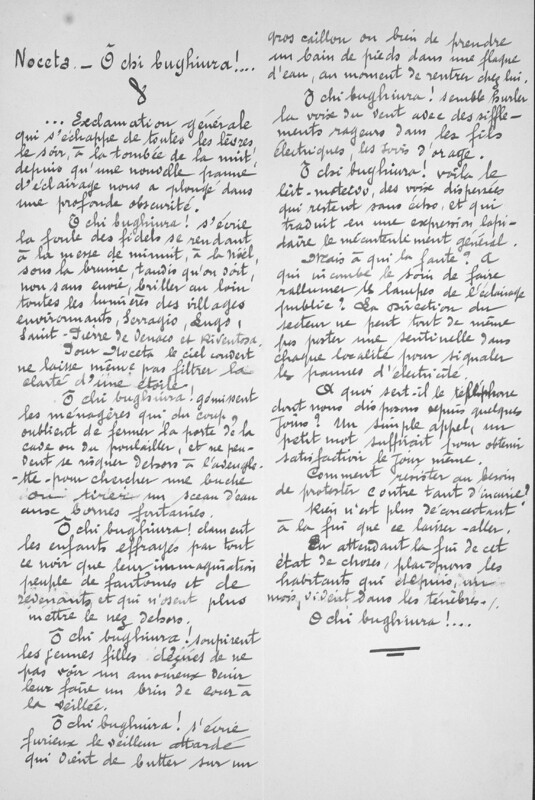 Noceta. - Ô chi bughiura!...
... Exclamation générale
qui s'échappe de toutes les lèvres
le soir, à la tombée de la nuit,
depuis qu'une nouvelle panne
d'éclairage nous a plongé dans
une profonde obscurité.
Ô chi bughiura! s'écrie
la foule des fidels se rendant
à la messe de minuit, à la Noël,
sous la brume, tandis qu'on voit,
non sans envie, briller au loin
toutes les lumières des villages
environnants, Serragio, Lugo,
Saint-Pierre de Venaco et Riventosa.
Pour Noceta le ciel couvert
ne laisse même pas filtrer la
clarté d'une étoile!
Ô chi bughiura! gémissent
les ménagères qui du coup
oublient de fermer la porte de la
cave ou du poulailler, et ne peu-
vent se risquer dehors à l'aveugle-
tte pour chercher une buche
ou tirer un sceau d'eau
aux bornes fontaines.
Ô chi bughiura! clament
les enfants effrayés par tout
ce noir que leur immagination
peuple de fantomes et de
revenants, et qui n'osent plus
mettre le nez dehors.
Ô chi bughiura! soupirent
les jeunes filles déçues de ne
pas voir un amoureux venir
leur faire un brin de cour à
la veillée.
Ô chi bughiura! s'écrie
furieux le veilleur attardé
qui vient de butter sur un
gros caillou ou bien de prendre
un bain de pieds dans une flaque
d'eau, au moment de rentrer chez lui.
Ô chi bughiura! semble hurler
la voix du vent avec des siffle-
ments rageurs dans les fils
électriques, les soirs d'orage.
Ô chi bughiura! voilà le
leit-motivo, des voix dispersées
qui restent sans écho, et qui
traduit en une expression lapi-
daire le mécontentement général.
Mais à qui la faute? A
qui incombe le soin de faire
rallumer les lampes de l'éclairage
publice? La direction du
secteur ne peut tout de même
pas poster une sentinelle dans
chaque localité pour signaler
les pannes d'électricité.
A quoi sert-il le téléphone
dont nous disposons depuis quelques
jours? Un simple appel, un
petit mot suffirait pour obtenir
satisfaction le jour même.
Comment résister au besoin
de protester contre tant d'incurie?
Rien n'est plus déconcertant
à la fin que ce laisser-aller.
En attendant la fin de cet
état de choses, plaignons les
habitants qui depuis, un
mois, vivent dans les ténèbres.
Ô chi bughiura!...